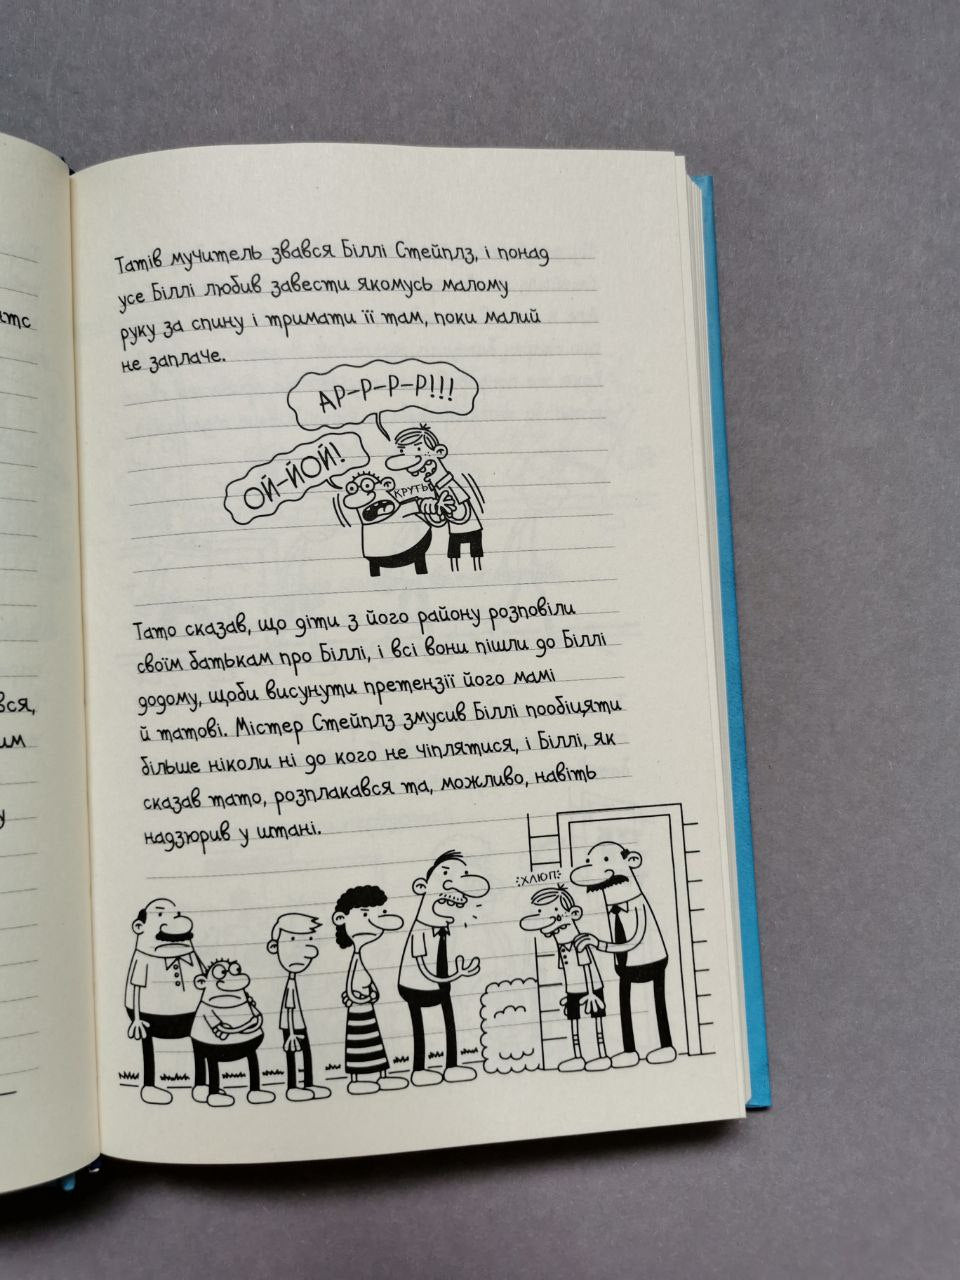 Татів мучитель звався Біллі Стейплз, і понад
усе Біллі любив завести якомусь малому
руку за спину і тримати її там, поки малий
не заплаче.
АР-Р-Р-Р!!!
ОЙ-ЙОЙ!
КРУТЬ
Тато сказав, що діти з його району розповіли
своїм батькам про Біллі, і всі вони пішли до Біллі
додому, щоби висунути претензії його мамі
й татові. Містер Стейплз змусив Біллі пообіцяти
більше ніколи ні до кого не чіплятися, і Біллі, як
сказав тато, розплакався та, можливо, навіть
надзюрив у штані.
ХЛЮП